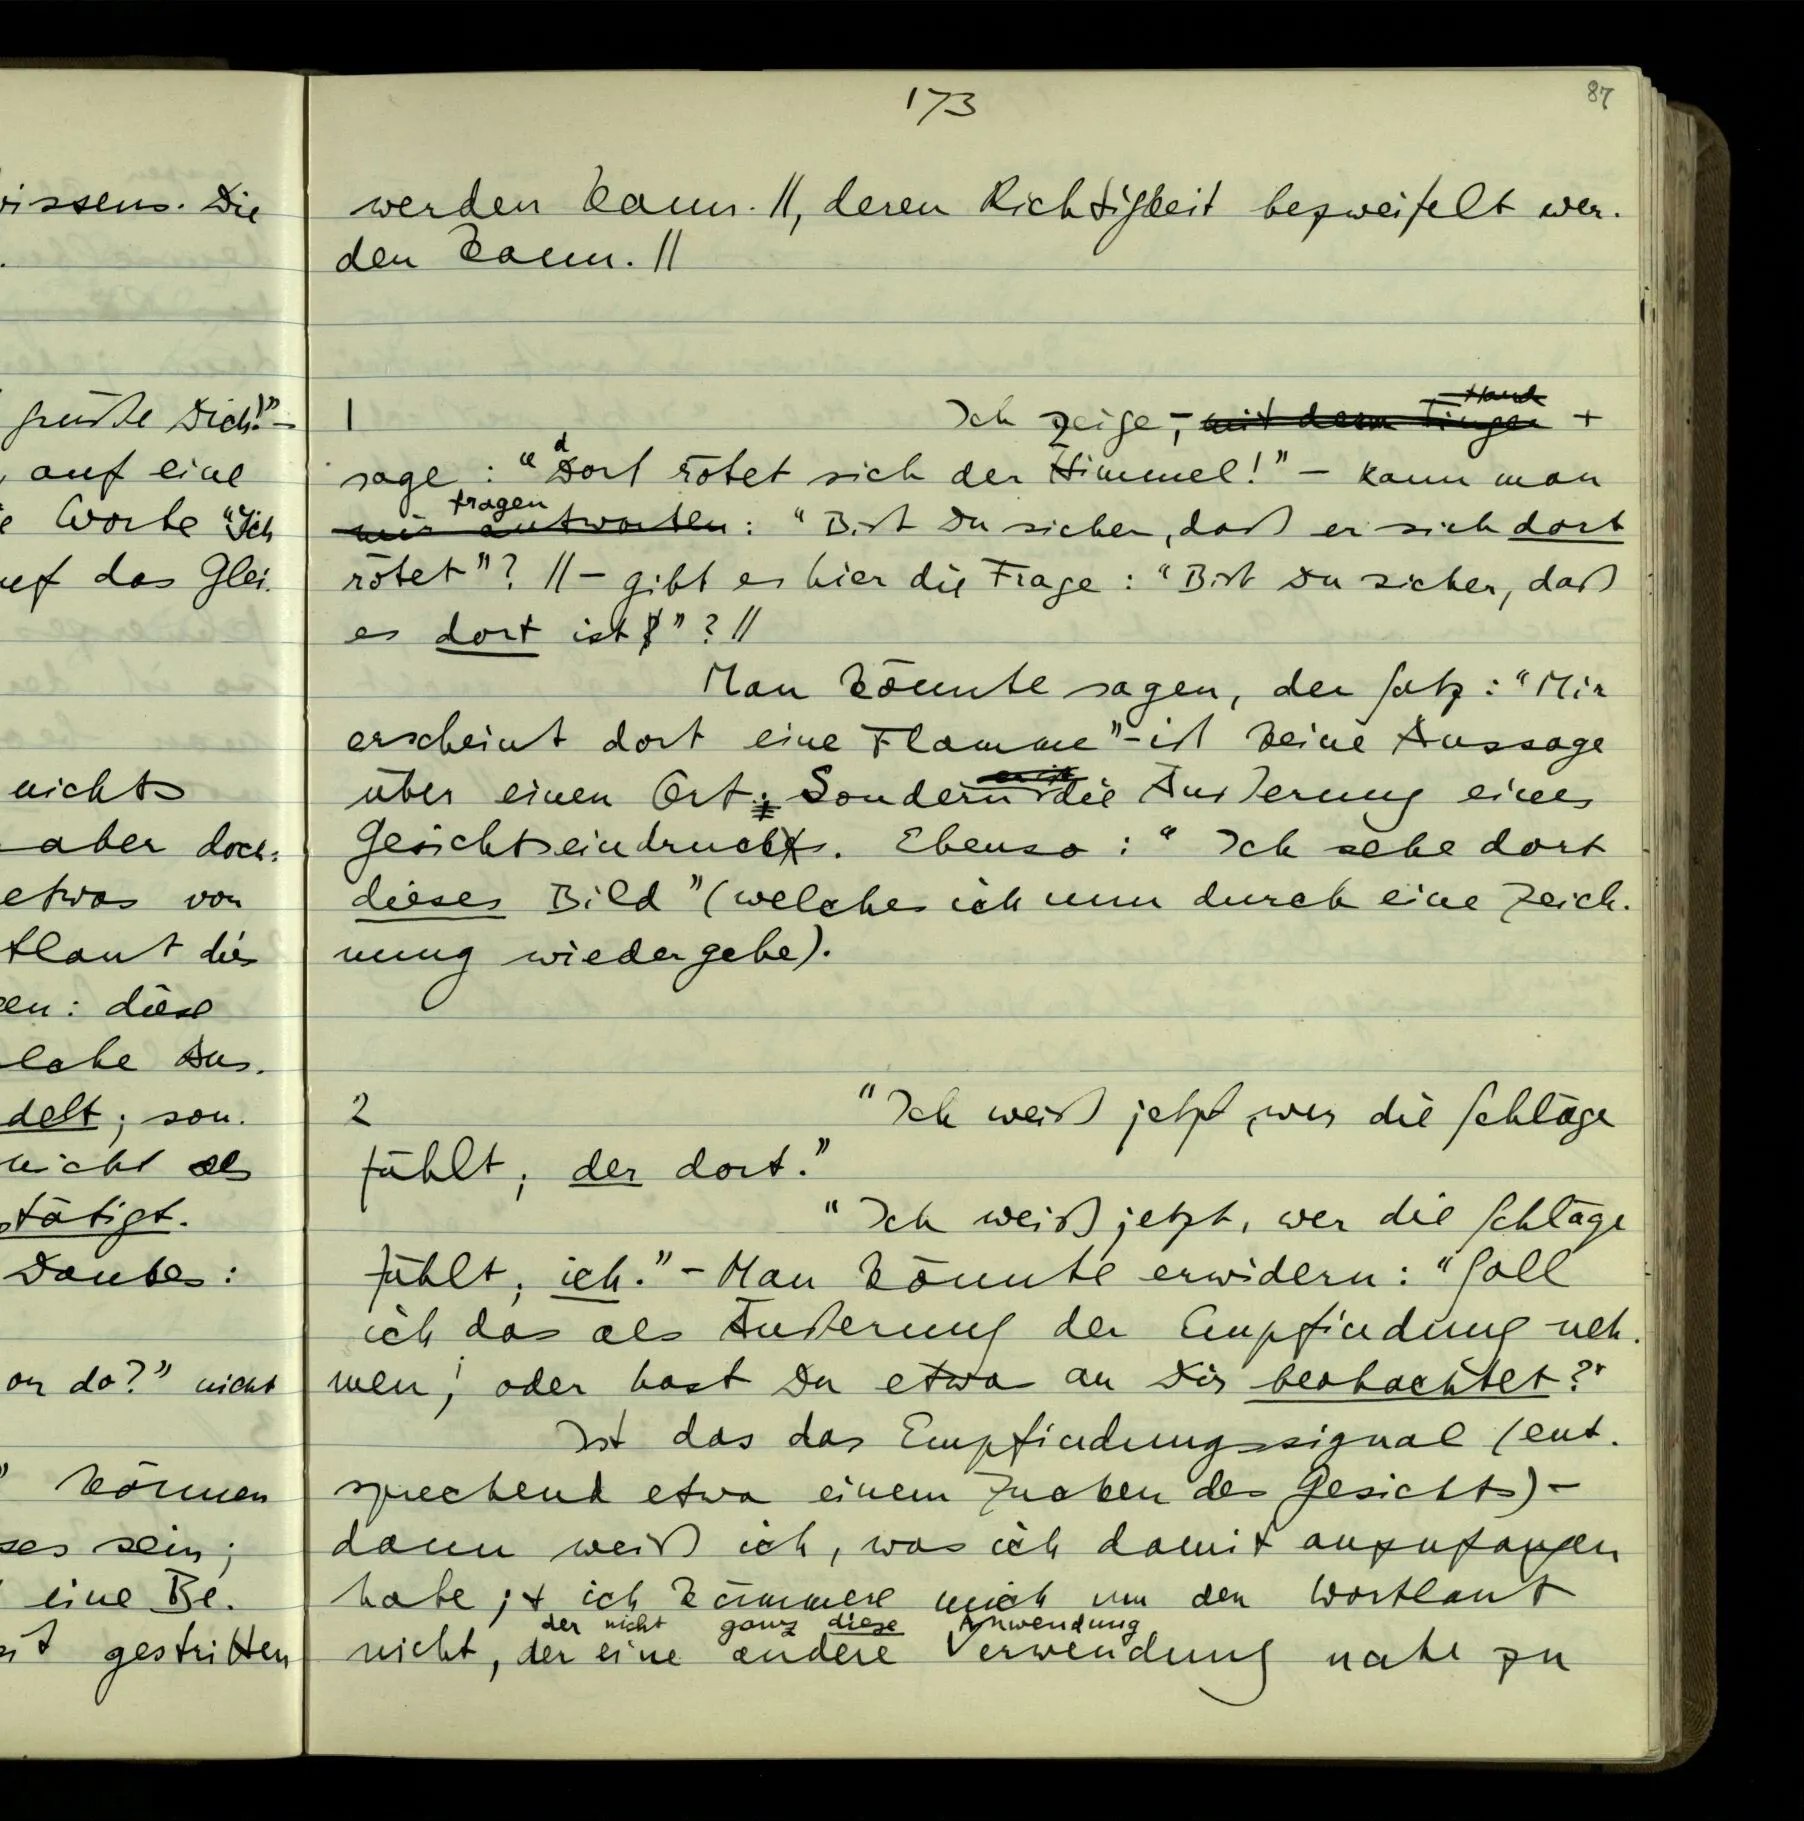 173
87
wissens. Die
grüße Dich!" –
auf eine
Worte "Ich
auf das Glei-
nichts
aber doch:
etwas von
tlaut die
en: diese
lche Aus-
delt; son-
nicht als
stätigt.
Dankes:
on da?" nicht
" können
ses sein;
eine Be-
gestritten
werden kann. //, deren Richtigkeit bezweifelt wer-
den kann. //
1
Hand
Ich zeige, – mit dem Finger +
d
sage: "Dort rötet sich der Himmel!" – kann man
fragen
mir antworten: "Bist Du sicher, daß er sich dort
rötet"? // – gibt es hier die Frage: "Bist Du sicher, daß
es dort ist"? //
Man könnte sagen, der Satz: "Mir
erscheint dort eine Flamme" – ist keine Aussage
er ist
über einen Ort; Sondern die Äußerung eines
Gesichtseindrucks. Ebenso: "Ich sehe dort
dieses Bild" (welches ich nun durch eine Zeich-
nung wiedergebe).
2
"Ich weiß jetzt, wer die Schläge
fühlt; der dort."
"Ich weiß jetzt, wer die Schläge
fühlt; ich." – Man könnte erwidern: "Soll
ich das als Äußerung der Empfindung neh-
men; oder hast Du etwa an Dir beobachtet?"
Ist das das Empfindungssignal (ent-
sprechend etwa einem Zucken des Gesichts) –
dann weiß ich, was ich damit anzufangen
habe; + ich kümmere mich um den Wortlaut
der nicht ganz diese Anwendung
nicht, der eine andere Verwendung nahe zu